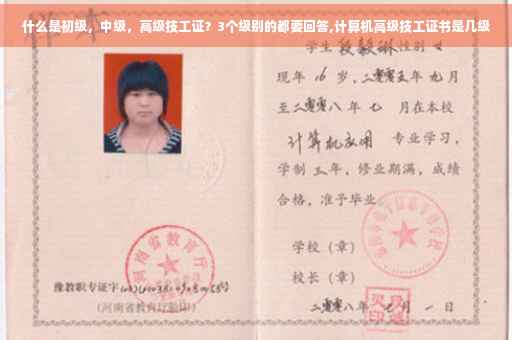 什么是初级，中级，高级技工证？3个级别的都要回答,计算机高级技工证书是几级
学生段毅琳性别女
现年16岁，二零零五年九月
至二零零八年七月在本校
计算机应用 专业学习，
学制三年，修业期满，成绩
合格，准予毕业
学校（章）
校长（章）
二零零八年七月一日
河南省教育厅
豫教职专证字
（河南省教育厅验印）